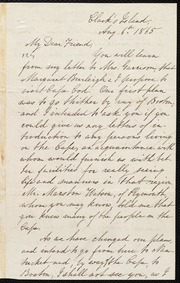 Clark's Island,
Aug. 6th 1865
My Dear Friend,
You will learn
from my letter to Mr. Garrison that
Margaret Burleigh & I propose to
visit Cape Cod. Our first plan
was to go thither by way of Boston,
and I intended to ask you if you
were able to give us letters of in-
troduction to any persons living
on the Cape, an acquaintance with
whom would furnish us with bet-
ter facilities for really seeing
life and manners in that region.
Mr. Marston Watson, of Plymouth,
whom you may know, told me that
you knew many of the people on the
Cape.
As we have changed our plan,
and intend to go from here to
and by way of the Cape to
Boston, I shall not see you, as I